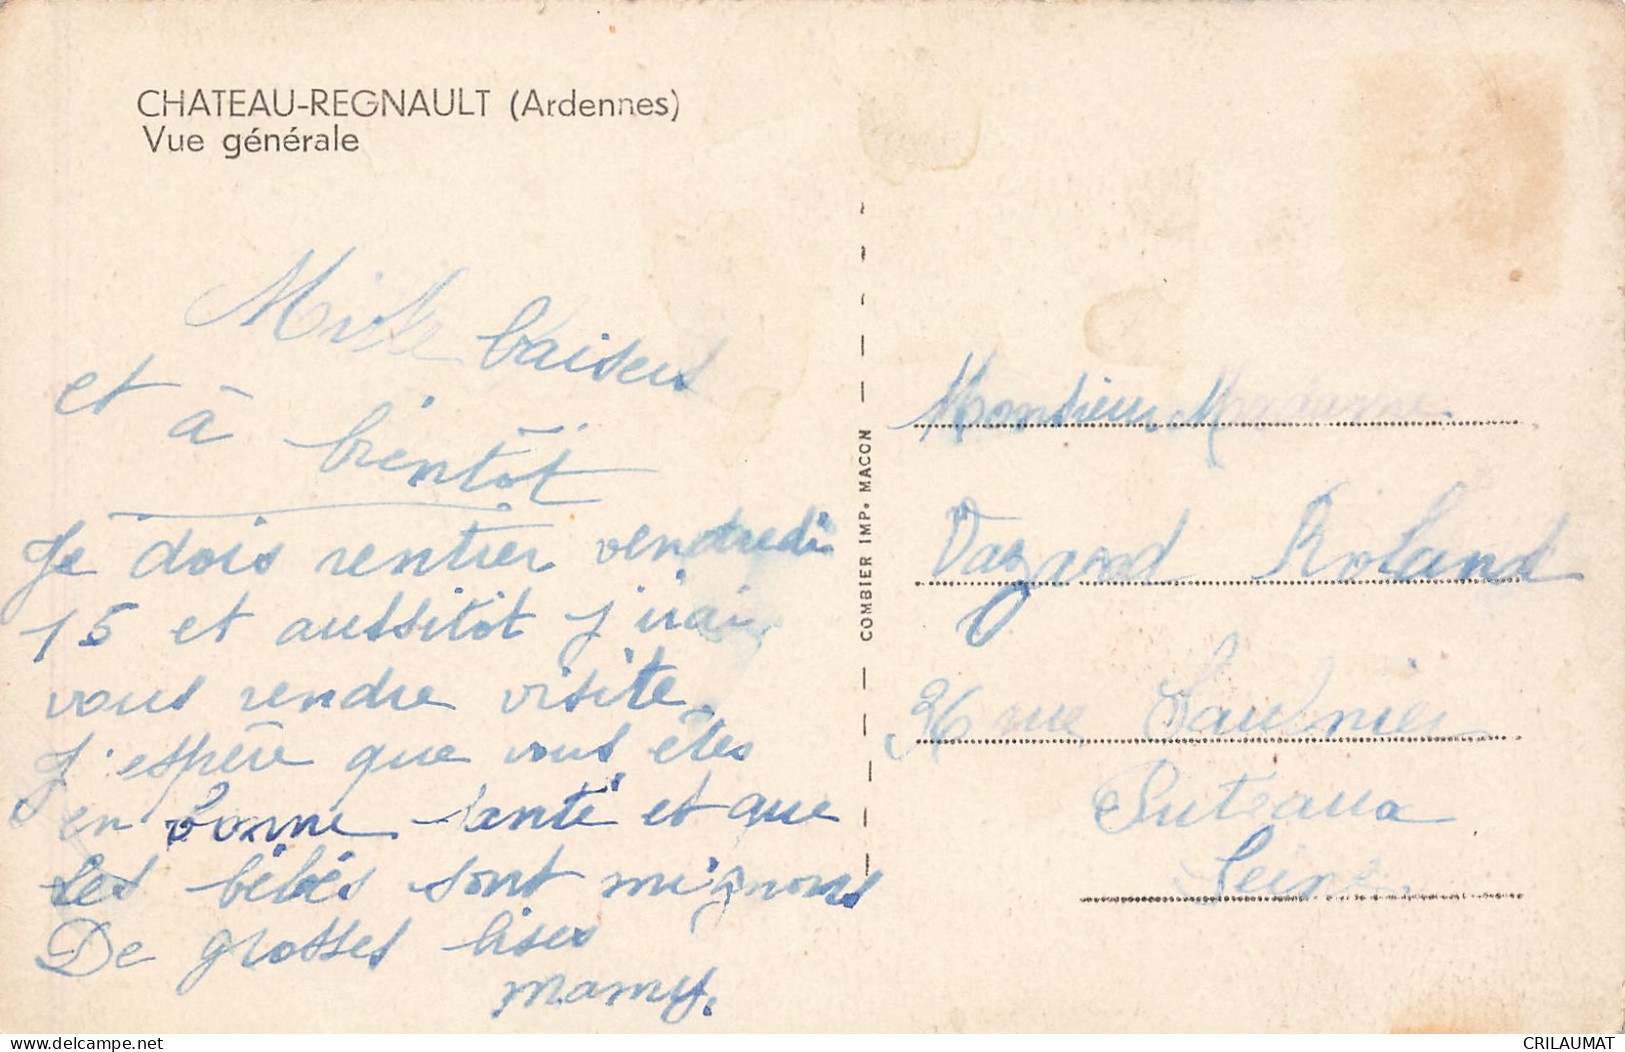 CHATEAU-REGNAULT (Ardennes)
Vue générale
Mille baisers
et à bientôt
Je dois rentrer vendredi
15 et aussitôt j'irai
vous rendre visite.
J'espère que vous êtes
en bonne santé et que
les bébés sont mignons
De grosses bises
mamy.
COMBIER IMP. MACON
Monsieur Madame
Vazard Roland
36 rue Saulnier
Puteaux
Seine
Delcampe.net
CRILAUMAT